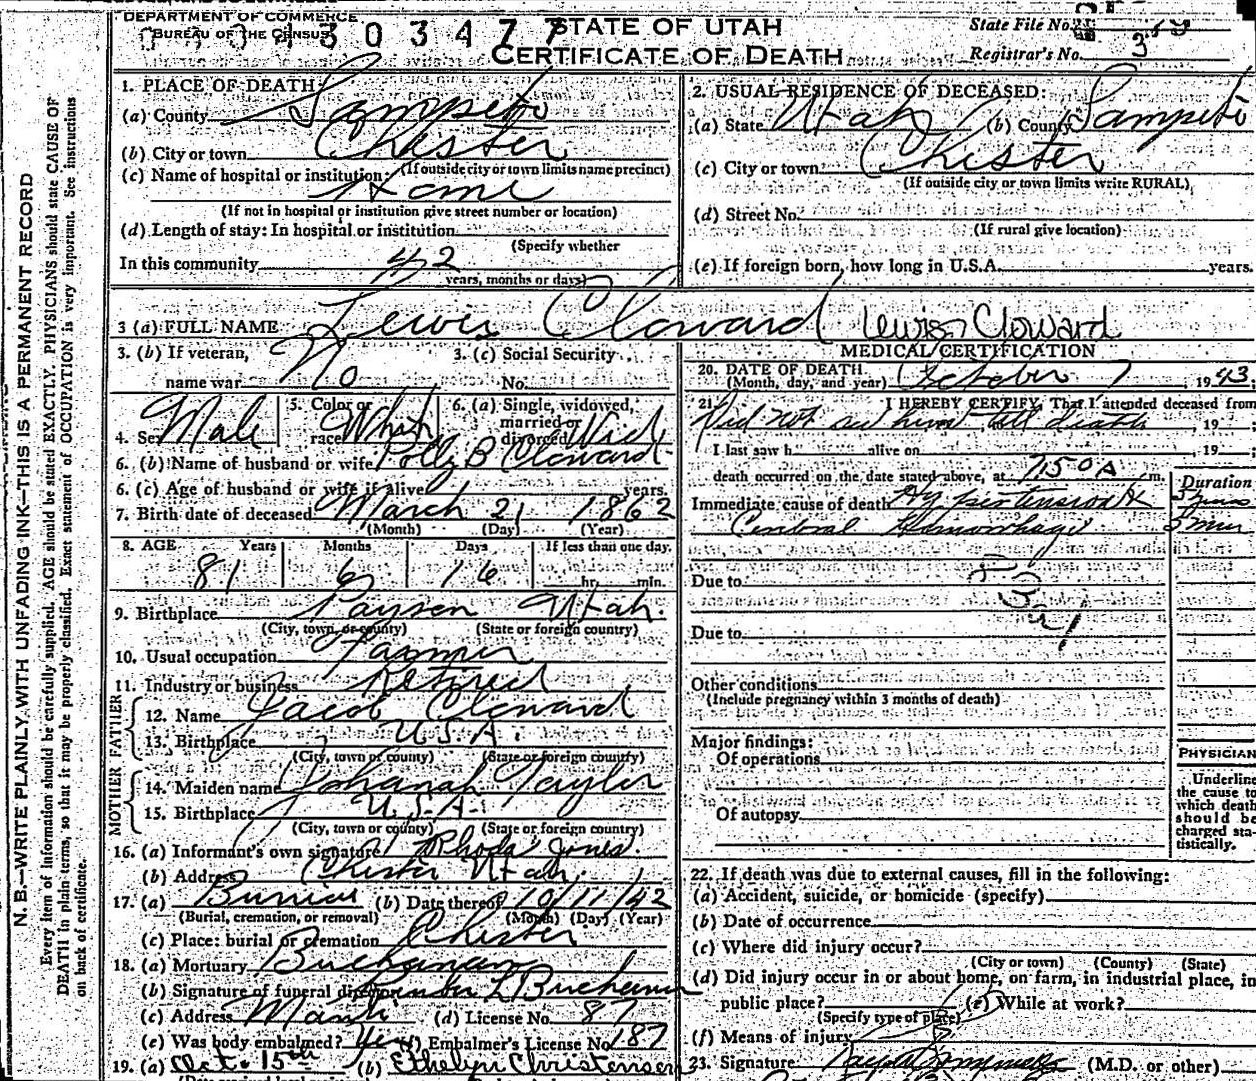 DEPARTMENT OF COMMERCE
BUREAU OF THE CENSUS
4 3 0 3 4 7 7
STATE OF UTAH
CERTIFICATE OF DEATH
State File No.
Registrar's No. 3
N. B.—WRITE PLAINLY, WITH UNFADING INK—THIS IS A PERMANENT RECORD
Every item of information should be carefully supplied. AGE should be stated EXACTLY. PHYSICIANS should state CAUSE OF
DEATH in plain terms, so that it may be properly classified. Exact statement of OCCUPATION is very important. See instructions
on back of certificate.
1. PLACE OF DEATH:
(a) County Sanpete
(b) City or town Chester
(If outside city or town limits name precinct)
(c) Name of hospital or institution:
Home
(If not in hospital or institution give street number or location)
(d) Length of stay: In hospital or institution
(Specify whether
In this community 42
years, months or days)
2. USUAL RESIDENCE OF DECEASED:
(a) State Utah (b) County Sanpete
(c) City or town Chester
(If outside city or town limits write RURAL)
(d) Street No.
(If rural give location)
(e) If foreign born, how long in U.S.A. years.
3 (a) FULL NAME Lewis Cloward Lewis Cloward
3. (b) If veteran, name war No 3. (c) Social Security No.
4. Sex Male 5. Color or race White 6. (a) Single, widowed, married or divorced Wid
6. (b) Name of husband or wife Polly B Cloward
6. (c) Age of husband or wife if alive years
7. Birth date of deceased March 21 1862
(Month) (Day) (Year)
8. AGE Years Months Days If less than one day.
81 6 16 hr. min.
9. Birthplace Payson Utah.
(City, town, or county) (State or foreign country)
10. Usual occupation Farmer
11. Industry or business Retired
FATHER
12. Name Jacob Cloward
13. Birthplace U.S.A.
(City, town or county) (State or foreign country)
MOTHER
14. Maiden name Johanah Taylor
15. Birthplace U.S.A.
(City, town or county) (State or foreign country)
16. (a) Informant's own signature Rhoda Jones.
(b) Address Chester Utah.
17. (a) Burial (b) Date thereof 10/11/42
(Burial, cremation, or removal) (Month) (Day) (Year)
(c) Place: burial or cremation Chester
18. (a) Mortuary Buchanan
(b) Signature of funeral director L Buchanan
(c) Address Manti (d) License No. 87
(e) Was body embalmed? Yes (f) Embalmer's License No. 187
19. (a) Oct. 15th (b) Ethelyn Christensen
MEDICAL CERTIFICATION
20. DATE OF DEATH
(Month, day, and year) October 7, 1943
21. I HEREBY CERTIFY, That I attended deceased from
Did not see him till death, 19 ;
I last saw h alive on , 19 ;
death occurred on the date stated above, at 7:50 A m.
Duration
Immediate cause of death
Hemorrhage 5 min
Due to
Due to
Other conditions
(Include pregnancy within 3 months of death)
Major findings:
Of operations
Of autopsy
PHYSICIAN
Underline
the cause to
which death
should be
charged sta-
tistically.
22. If death was due to external causes, fill in the following:
(a) Accident, suicide, or homicide (specify)
(b) Date of occurrence
(c) Where did injury occur?
(City or town) (County) (State)
(d) Did injury occur in or about home, on farm, in industrial place, in
public place? (e) While at work?
(Specify type of place)
(f) Means of injury
23. Signature (M.D. or other)